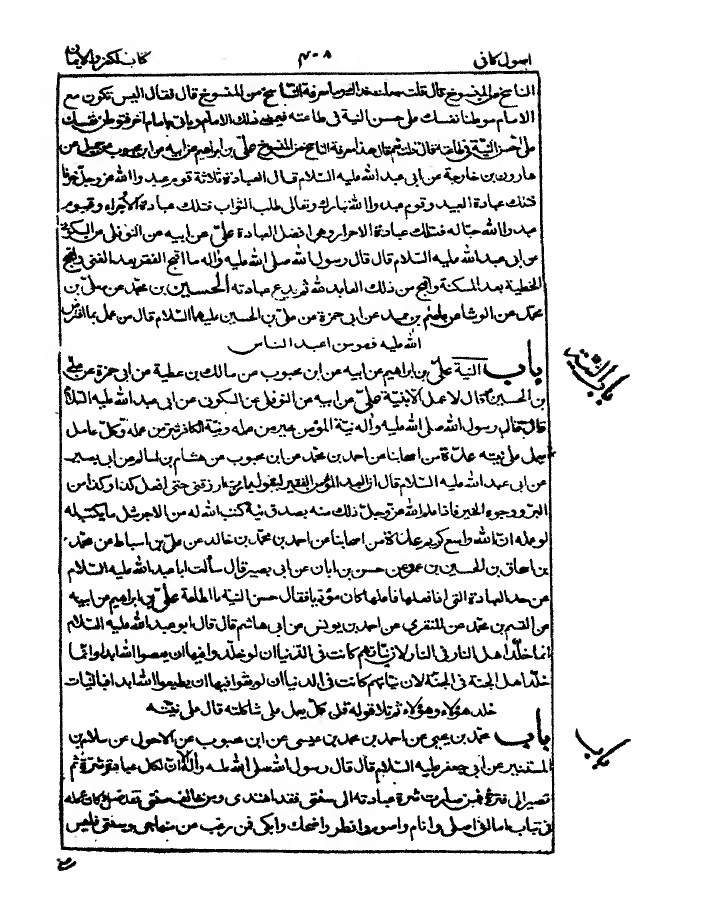 اصول كافى ٣٠٨ كتاب الكفر والايمان
الناسخ من المنسوخ قال قلت جعلت فداك وما معرفة الناسخ من المنسوخ قال فقال اليس تكون مع
الامام موطنا نفسك على حسن النية فى طاعته فيمضى ذلك الامام وياتى امام اخر فتوطن نفسك
على حسن النية فى طاعته قال قلت نعم قال هذا معرفة الناسخ من المنسوخ على بن ابراهيم عن ابيه عن ابن محبوب عن جميل عن
هارون بن خارجة عن ابى عبد الله عليه السلام قال العبادة ثلاثة قوم عبدوا الله عز وجل خوفا
فتلك عبادة العبيد وقوم عبدوا الله تبارك وتعالى طلب الثواب فتلك عبادة الأجراء وقوم
عبدوا الله حبا له فتلك عبادة الاحرار وهى افضل العبادة على عن ابيه عن النوفلى عن السكونى
عن ابى عبد الله عليه السلام قال قال رسول الله صلى الله عليه واله ما اقبح الفقر بعد الغنى واقبح
الخطيئة بعد المسكنة واقبح من ذلك العابد لله ثم يدع عبادته الحسين بن محمد عن معلى بن
محمد عن الوشا عن عاصم بن حميد عن ابى حمزة عن على بن الحسين عليهما السلام قال من عمل بما افترض
الله عليه فهو من اعبد الناس
باب النية على بن ابراهيم عن ابيه عن ابن محبوب عن مالك بن عطية عن ابى حمزة عن على
بن الحسين ع قال لا عمل الا بنية على عن ابيه عن النوفلى عن السكونى عن ابى عبد الله عليه السلام
قال قال رسول الله صلى الله عليه واله نية المؤمن خير من عمله ونية الكافر شر من عمله وكل عامل
يعمل على نيته عدة من اصحابنا عن احمد بن محمد عن ابن محبوب عن هشام بن سالم عن ابى بصير
عن ابى عبد الله عليه السلام قال ان العبد المؤمن الفقير ليقول يا رب ارزقنى حتى افعل كذا وكذا من
البر ووجوه الخير فاذا علم الله عز وجل ذلك منه بصدق نية كتب الله له من الاجر مثل ما يكتب له
لو عمله ان الله واسع كريم عدة من اصحابنا عن احمد بن محمد بن خالد عن على بن اسباط عن محمد
بن اسحاق بن الحسين بن عمرو عن حسن بن ابان عن ابى بصير قال سألت ابا عبد الله عليه السلام
عن حد العبادة التى اذا فعلها فاعلها كان مؤديا فقال حسن النية بالطاعة على بن ابراهيم عن ابيه
عن القسم بن محمد عن المنقرى عن احمد بن يونس عن ابى هاشم قال قال ابو عبد الله عليه السلام
انما خلد اهل النار فى النار لان نياتهم كانت فى الدنيا ان لو خلدوا فيها ان يعصوا الله ابدا وانما
خلد اهل الجنة فى الجنة لان نياتهم كانت فى الدنيا ان لو بقوا فيها ان يطيعوا الله ابدا فبالنيات
خلد هؤلاء وهؤلاء ثم تلا قوله قل كل يعمل على شاكلته قال على نيته
باب محمد بن يحيى عن احمد بن محمد بن عيسى عن ابن محبوب عن الاحول عن سلام بن
المستنير عن ابى جعفر عليه السلام قال قال رسول الله صلى الله عليه واله الا ان لكل عبادة شرة ثم
تصير الى فترة فمن صارت شرة عبادته الى سنتى فقد اهتدى ومن خالف سنتى فقد ضل وكان عمله
فى تباب اما انى اصلى وانام واصوم وافطر واضحك وابكى فمن رغب عن منهاجى وسنتى فليس
باب النية
باب